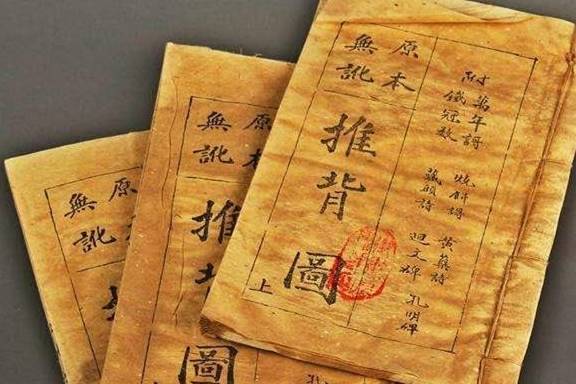 附萬年謌 燒餅謌 黃蘗詩
鐵冠數 藏頭詩 迴文碑 孔明碑
原本
無訛
推背圖
上
原本
無訛
推背圖
原本
無訛